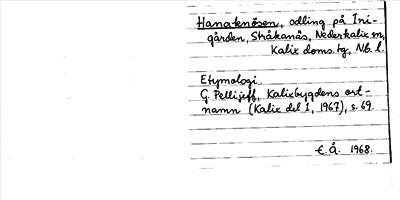 Hanaknösen, odling på Ini-
gården, Stråkanäs, Nederkalix sn,
Kalix doms. tg, Nb. l.
Etymologi.
G. Pellijeff, Kalixbygdens ort-
namn (Kalix del 1, 1967), s. 69.
E. Å. 1968.